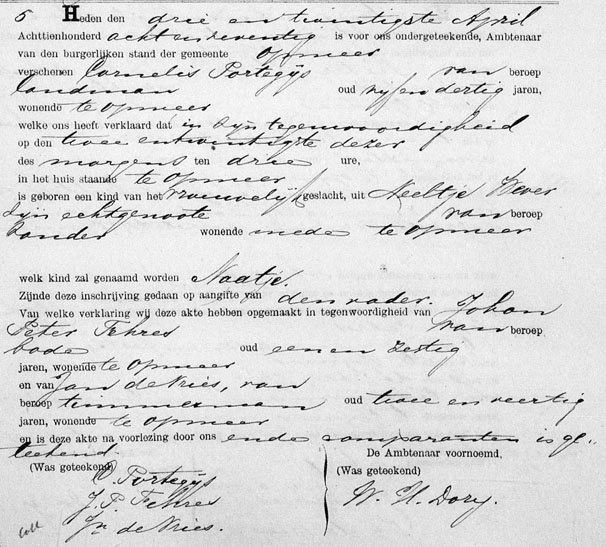 5 Heden den drie en twintigste April
Achttienhonderd acht en zeventig is voor ons ondergeteekende, Ambtenaar
van den burgerlijken stand der gemeente Opmeer
verschenen Cornelis Portegijs van beroep
landman oud vijf en dertig jaren,
wonende te Opmeer
welke ons heeft verklaard dat in zijn tegenwoordigheid
op den twee entwintigste dezer
des morgens ten drie ure,
in het huis staande te Opmeer
is geboren een kind van het vrouwelijk geslacht, uit Neeltje Wever
zijn echtgenoote van beroep
zonder wonende mede te Opmeer
welk kind zal genaamd worden Naatje.
Zijnde deze inschrijving gedaan op aangifte van den vader.
Van welke verklaring wij deze akte hebben opgemaakt in tegenwoordigheid van Johan
Peter Fehres van beroep
bode oud eenen zestig
jaren, wonende te Opmeer
en van Jan de Vries, van
beroep timmerman oud twee en veertig
jaren, wonende te Opmeer
en is deze akte na voorlezing door ons ende comparanten is ge„
teekend.
De Ambtenaar voornoemd,
(Was geteekend) (Was geteekend)
C. Portegijs
J. P. Fehres
Jn de Vries.
W. H. Dory.